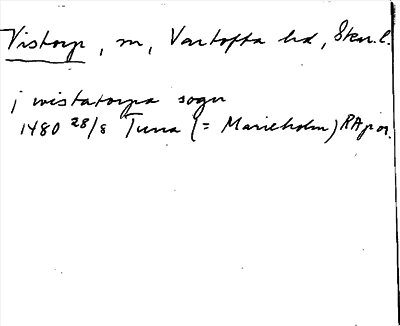 Vistorp, m, Vartofta hd, Skar.l.
j wistatorpa sogn
1480 28/8 Tuna (= Marieholm) RAp or.